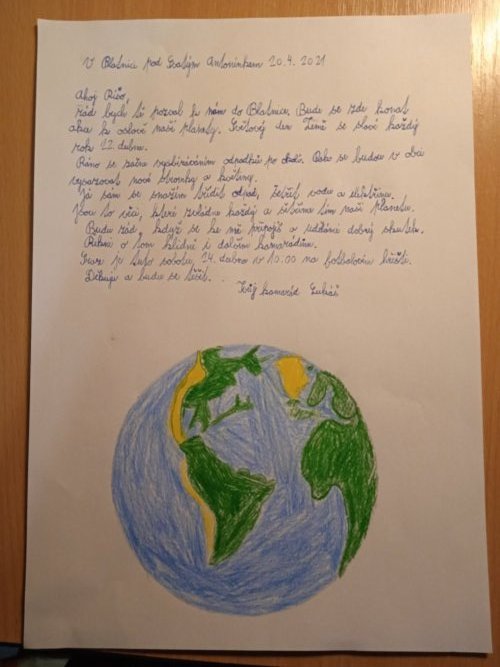 V Blatnici pod Svatým Antonínkem 20.4. 2021
Ahoj Ríšo,
rád bych tě pozval k nám do Blatnice. Bude se zde konat
akce k oslavě naší planety. Světový den Země se slaví každý
rok 22. dubna.
Ráno se začne vysbíráváním odpadků po okolí. Poté se budou v obci
vysazovat nové stromky a květiny.
Já sám se snažím třídit odpad, šetřit vodu a elektřinu.
Jsou to věci, které zvládne každý a šetříme tím naši planetu.
Budu rád, když se ke mě připojíš a uděláme dobrý skutek.
Řekni o tom klidně i dalším kamarádům.
Sraz je tuto sobotu, 24. dubna v 10.00 na fotbalovém hřišti.
Děkuji a budu se těšit.
Tvůj kamarád Lukáš